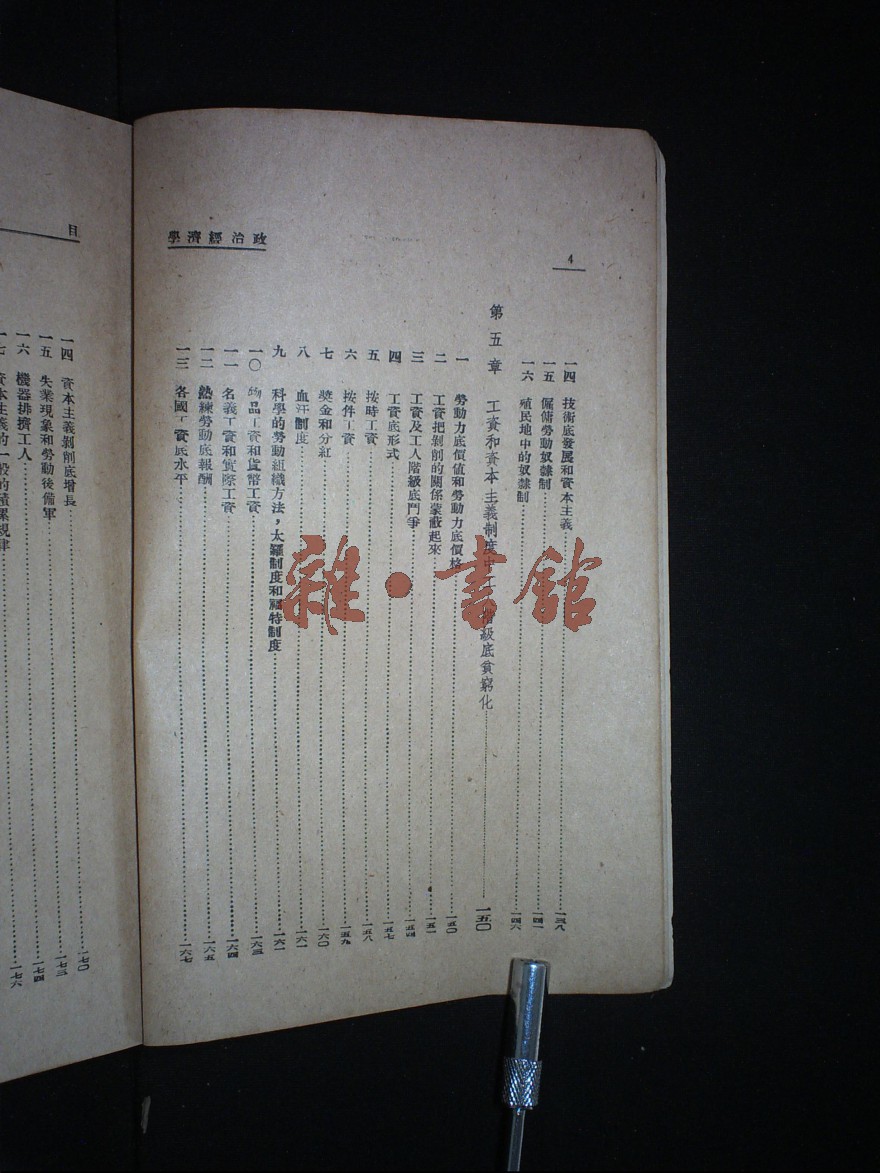 政治經濟學
4
一四 技術底發展和資本主義 一三八
一五 僱傭勞動奴隸制 一四一
一六 殖民地中的奴隸制 一四六
第五章 工資和資本主義制度中工 階級底貧窮化 一五〇
一 勞動力底價值和勞動力底價格 一五〇
二 工資把剝削的關係蒙蔽起來 一五一
三 工資及工人階級底鬥爭 一五四
四 工資底形式 一五七
五 按時工資 一五八
六 按件工資 一五九
七 獎金和分紅 一六〇
八 血汗制度 一六一
九 科學的勞動組織方法，太羅制度和福特制度 一六一
一〇 物品工資和貨幣工資 一六三
一一 名義工資和實際工資 一六四
一二 熟練勞動底報酬 一六五
一三 各國工資底水平 一六七
目
一四 資本主義剝削底增長 一七〇
一五 失業現象和勞動後備軍 一七三
一六 機器排擠工人 一七四
一七 資本主義的一般的積累規律 一七六
雜·書館